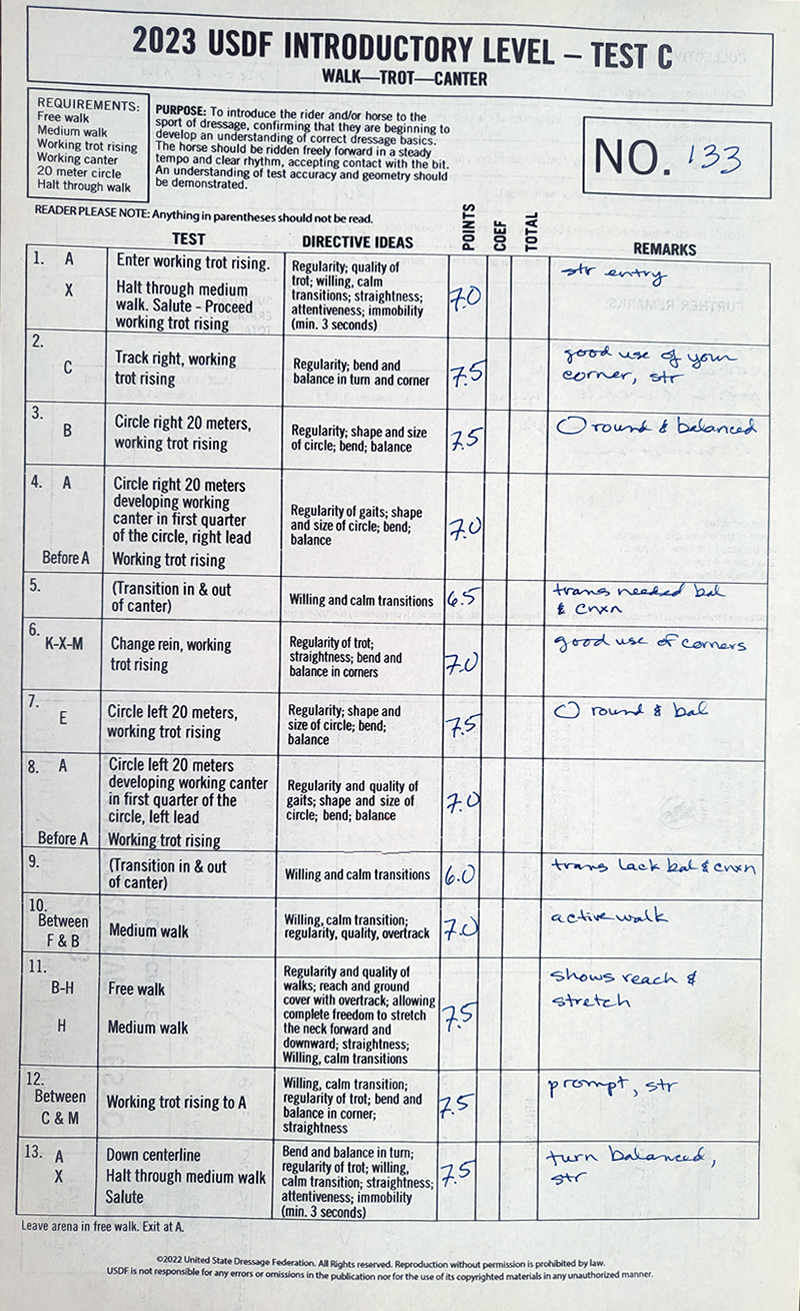 2023 USDF INTRODUCTORY LEVEL – TEST C
WALK—TROT—CANTER
REQUIREMENTS:
Free walk
Medium walk
Working trot rising
Working canter
20 meter circle
Halt through walk
PURPOSE: To introduce the rider and/or horse to the
sport of dressage, confirming that they are beginning to
develop an understanding of correct dressage basics.
The horse should be ridden freely forward in a steady
tempo and clear rhythm, accepting contact with the bit.
An understanding of test accuracy and geometry should
be demonstrated.
NO. 133
READER PLEASE NOTE: Anything in parentheses should not be read.
TEST
DIRECTIVE IDEAS
POINTS
COEF
TOTAL
REMARKS
1. A
Enter working trot rising.
X
Halt through medium
walk. Salute - Proceed
working trot rising
Regularity; quality of
trot; willing, calm
transitions; straightness;
attentiveness; immobility
(min. 3 seconds)
7.0
str entry
2.
C
Track right, working
trot rising
Regularity; bend and
balance in turn and corner
7.5
good use of your
corner, str
3.
B
Circle right 20 meters,
working trot rising
Regularity; shape and size
of circle; bend; balance
7.5
O round & balanced
4. A
Circle right 20 meters
developing working
canter in first quarter
of the circle, right lead
Before A
Working trot rising
Regularity of gaits; shape
and size of circle; bend;
balance
7.0
5.
(Transition in & out
of canter)
Willing and calm transitions
6.5
trans needed bal
& cnxn
6.
K-X-M
Change rein, working
trot rising
Regularity of trot;
straightness; bend and
balance in corners
7.0
good use of corners
7.
E
Circle left 20 meters,
working trot rising
Regularity; shape and
size of circle; bend;
balance
7.5
O round & bal
8. A
Circle left 20 meters
developing working canter
in first quarter of the
circle, left lead
Before A
Working trot rising
Regularity and quality of
gaits; shape and size of
circle; bend; balance
7.0
9.
(Transition in & out
of canter)
Willing and calm transitions
6.0
trans lack bal & cnxn
10.
Between
F & B
Medium walk
Willing, calm transition;
regularity, quality, overtrack
7.0
active walk
11.
B-H
Free walk
H
Medium walk
Regularity and quality of
walks; reach and ground
cover with overtrack; allowing
complete freedom to stretch
the neck forward and
downward; straightness;
Willing, calm transitions
7.5
shows reach &
stretch
12.
Between
C & M
Working trot rising to A
Willing, calm transition;
regularity of trot; bend and
balance in corner;
straightness
7.5
prompt, str
13. A
Down centerline
X
Halt through medium walk
Salute
Bend and balance in turn;
regularity of trot; willing,
calm transition; straightness;
attentiveness; immobility
(min. 3 seconds)
7.5
turn balanced,
str
Leave arena in free walk. Exit at A.
©2022 United State Dressage Federation. All Rights reserved. Reproduction without permission is prohibited by law.
USDF is not responsible for any errors or omissions in the publication nor for the use of its copyrighted materials in any unauthorized manner.